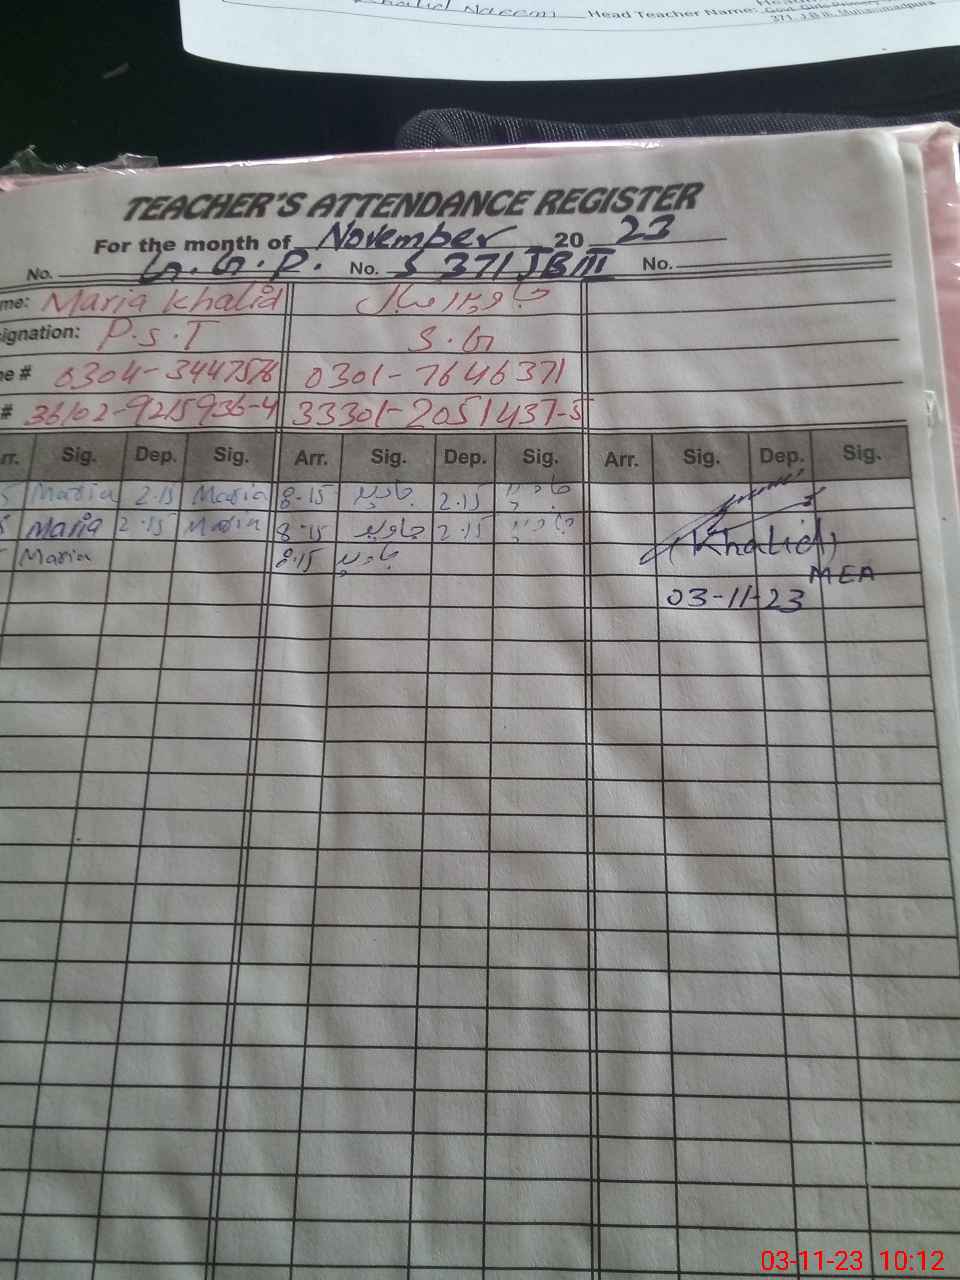 Khalid Naeem Head Teacher Name: Govt. Girls Primary
371 J.B III, Muhammadpura
TEACHER'S ATTENDANCE REGISTER
For the month of November 20 23
No. G.G.P. No. S 371 JB III No.
me: Maria Khalid جاوید اقبال
signation: P.S.T S.G
ne # 0304-3447576 0301-7646371
# 36102-9215936-4 33301-2051437-5
rr. Sig. Dep. Sig. Arr. Sig. Dep. Sig. Arr. Sig. Dep. Sig.
5 Maria 2.15 Maria 8.15 جاوید 2.15 جاوید
5 Maria 2.15 Maria 8.15 جاوید 2.15 جاوید
Maria 8.15 جاوید
(Khalid)
MEA
03-11-23
03-11-23 10:12